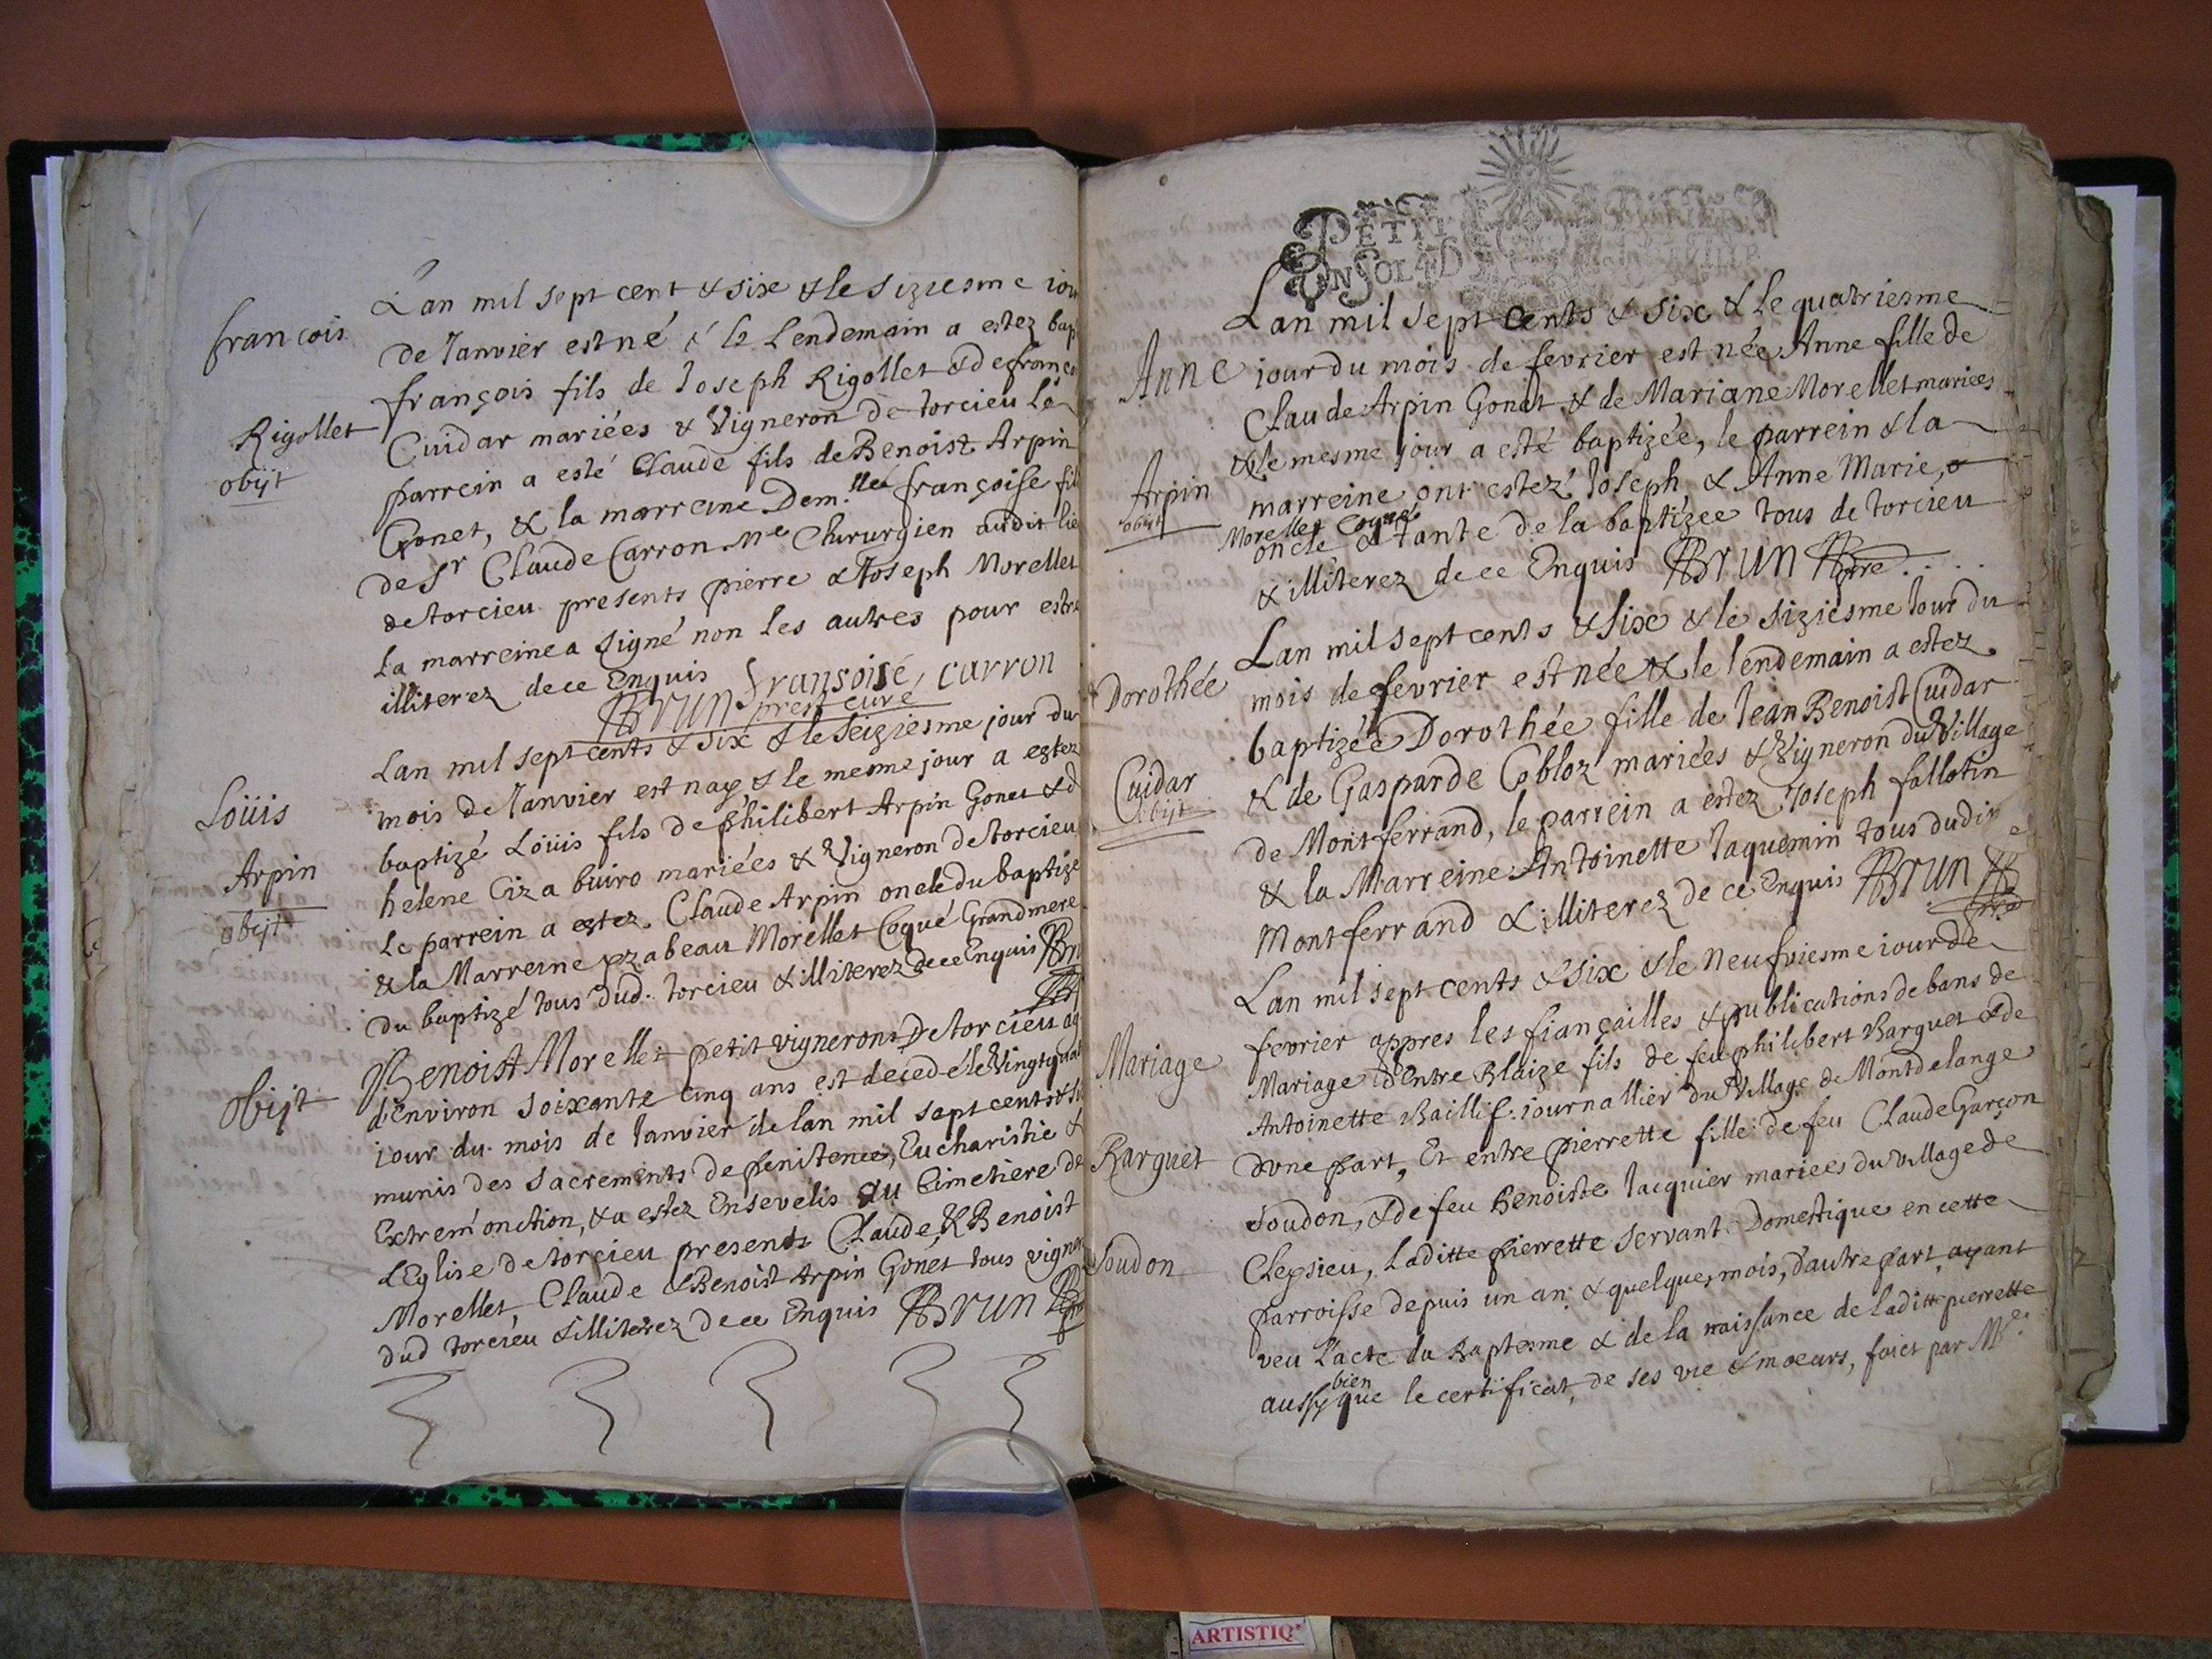 Lan mil sept cent & six & le siziesme iou
françois
de Ianvier est né & le Lendemain a estez bap
françois fils de Ioseph Rigollet & de franço
Rigollet
Cuidar mariées & Vigneron de torcieu Le
obijt
parrein a esté Claude fils de Benoist Arpin
Gonet, & la marreine Dem.lle françoise fil
de Sr Claude Carron Me Chirurgien audit lie
de torcieu presents pierre & Ioseph Morellet
La marreine a signé non les autres pour estre
illiterez de ce Enquis fransoise, carron
BRUN prest curé
Lan mil sept cents & six & le seiziesme jour du
mois de Ianvier est nay & le mesme jour a estez
Loüis
baptizé Loüis fils de philibert Arpin Gonet & d
Arpin
helene Ciza buiro mariées & Vigneron de torcieu
obijt
Le parrein a estez Claude Arpin oncle du baptizé
& la Marreine yzabeau Morellet Coqué Grandmere
du baptizé tous dud. torcieu & illiterez de ce Enquis Bru
Benoist Morellet petit vignerons De torcieu ag
obijt
d'environ soixante cinq ans est decedé le Vingtquat
iour du mois de Ianvier de lan mil sept cents & si
munis des sacrements de penitence, Eucharistie &
Extrem'onction, & a estez Ensevelis au Cimetiere de
L'Eglise de torcieu presents Claude, & Benoist
Morellet Claude & Benoist Arpin Gonet tous vigner
dud torcieu & illiterez de ce Enquis BRUN
PETIT
UN SOL 4 D
Lan mil sept cents & six & le quatriesme
Anne
iour du mois de fevrier est née Anne fille de
Claude Arpin Gonet & de Mariane Morellet mariees
& le mesme jour a esté baptizée, le parrein & la
Arpin
marreine ont estez Ioseph & Anne Marie,
obijt
Morellet Coqué
oncle & tante de la baptizée tous de torcieu
& illiterez de ce Enquis BRUN pre....
Lan mil sept cents & six & le siziesme Iour du
Dorothée
mois de fevrier est née & le lendemain a estez
baptizée Dorothée fille de Iean Benoist Cuidar
Cuidar
& de Gasparde Cobloz mariées & Vigneron du Village
obijt
de Montferrand, le parrein a estez Ioseph fallotin
& la Marreine Antoinette Iaquemin tous dudit
Montferrand & illiterez de ce Enquis BRUN
Lan mil sept cents & six & le Neufviesme iour de
fevrier appres les fiançailles & publications de bans de
Mariage
Mariage d'Entre Blaize fils de feu philibert Barguet & de
Antoinette Baillif iournallier du Village de Montdelange
Barguet
d'une part, Et entre pierrette fille de feu Claude Garçon
Soudon, & de feu Benoiste Iacquier mariees du village de
Soudon
Cleysieu, Laditte pierrette servant Domestique en cette
parroisse depuis un an & quelques mois, d'autre part, ayant
veu l'acte du Baptesme & de la naissance de laditte pierrette
bien
aussy que le certificat, de ses vie & moeurs, faict par Mre
ARTISTIQ